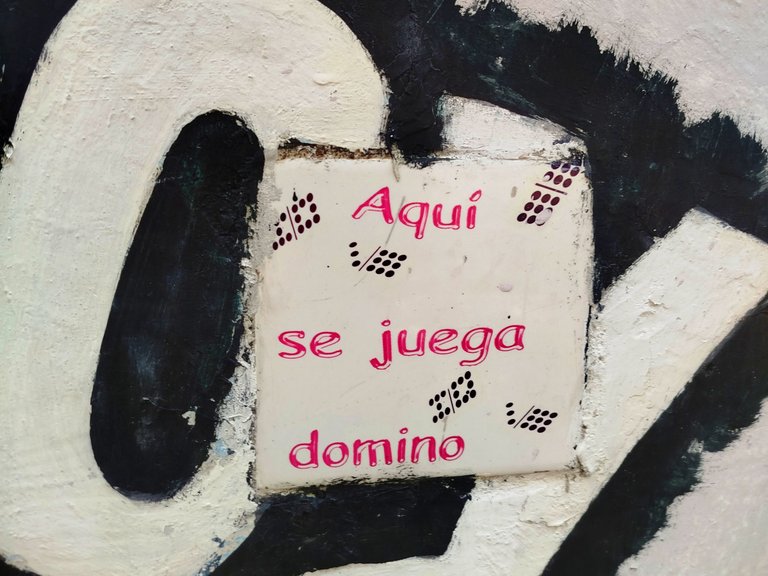 Aquí
se juega
domino